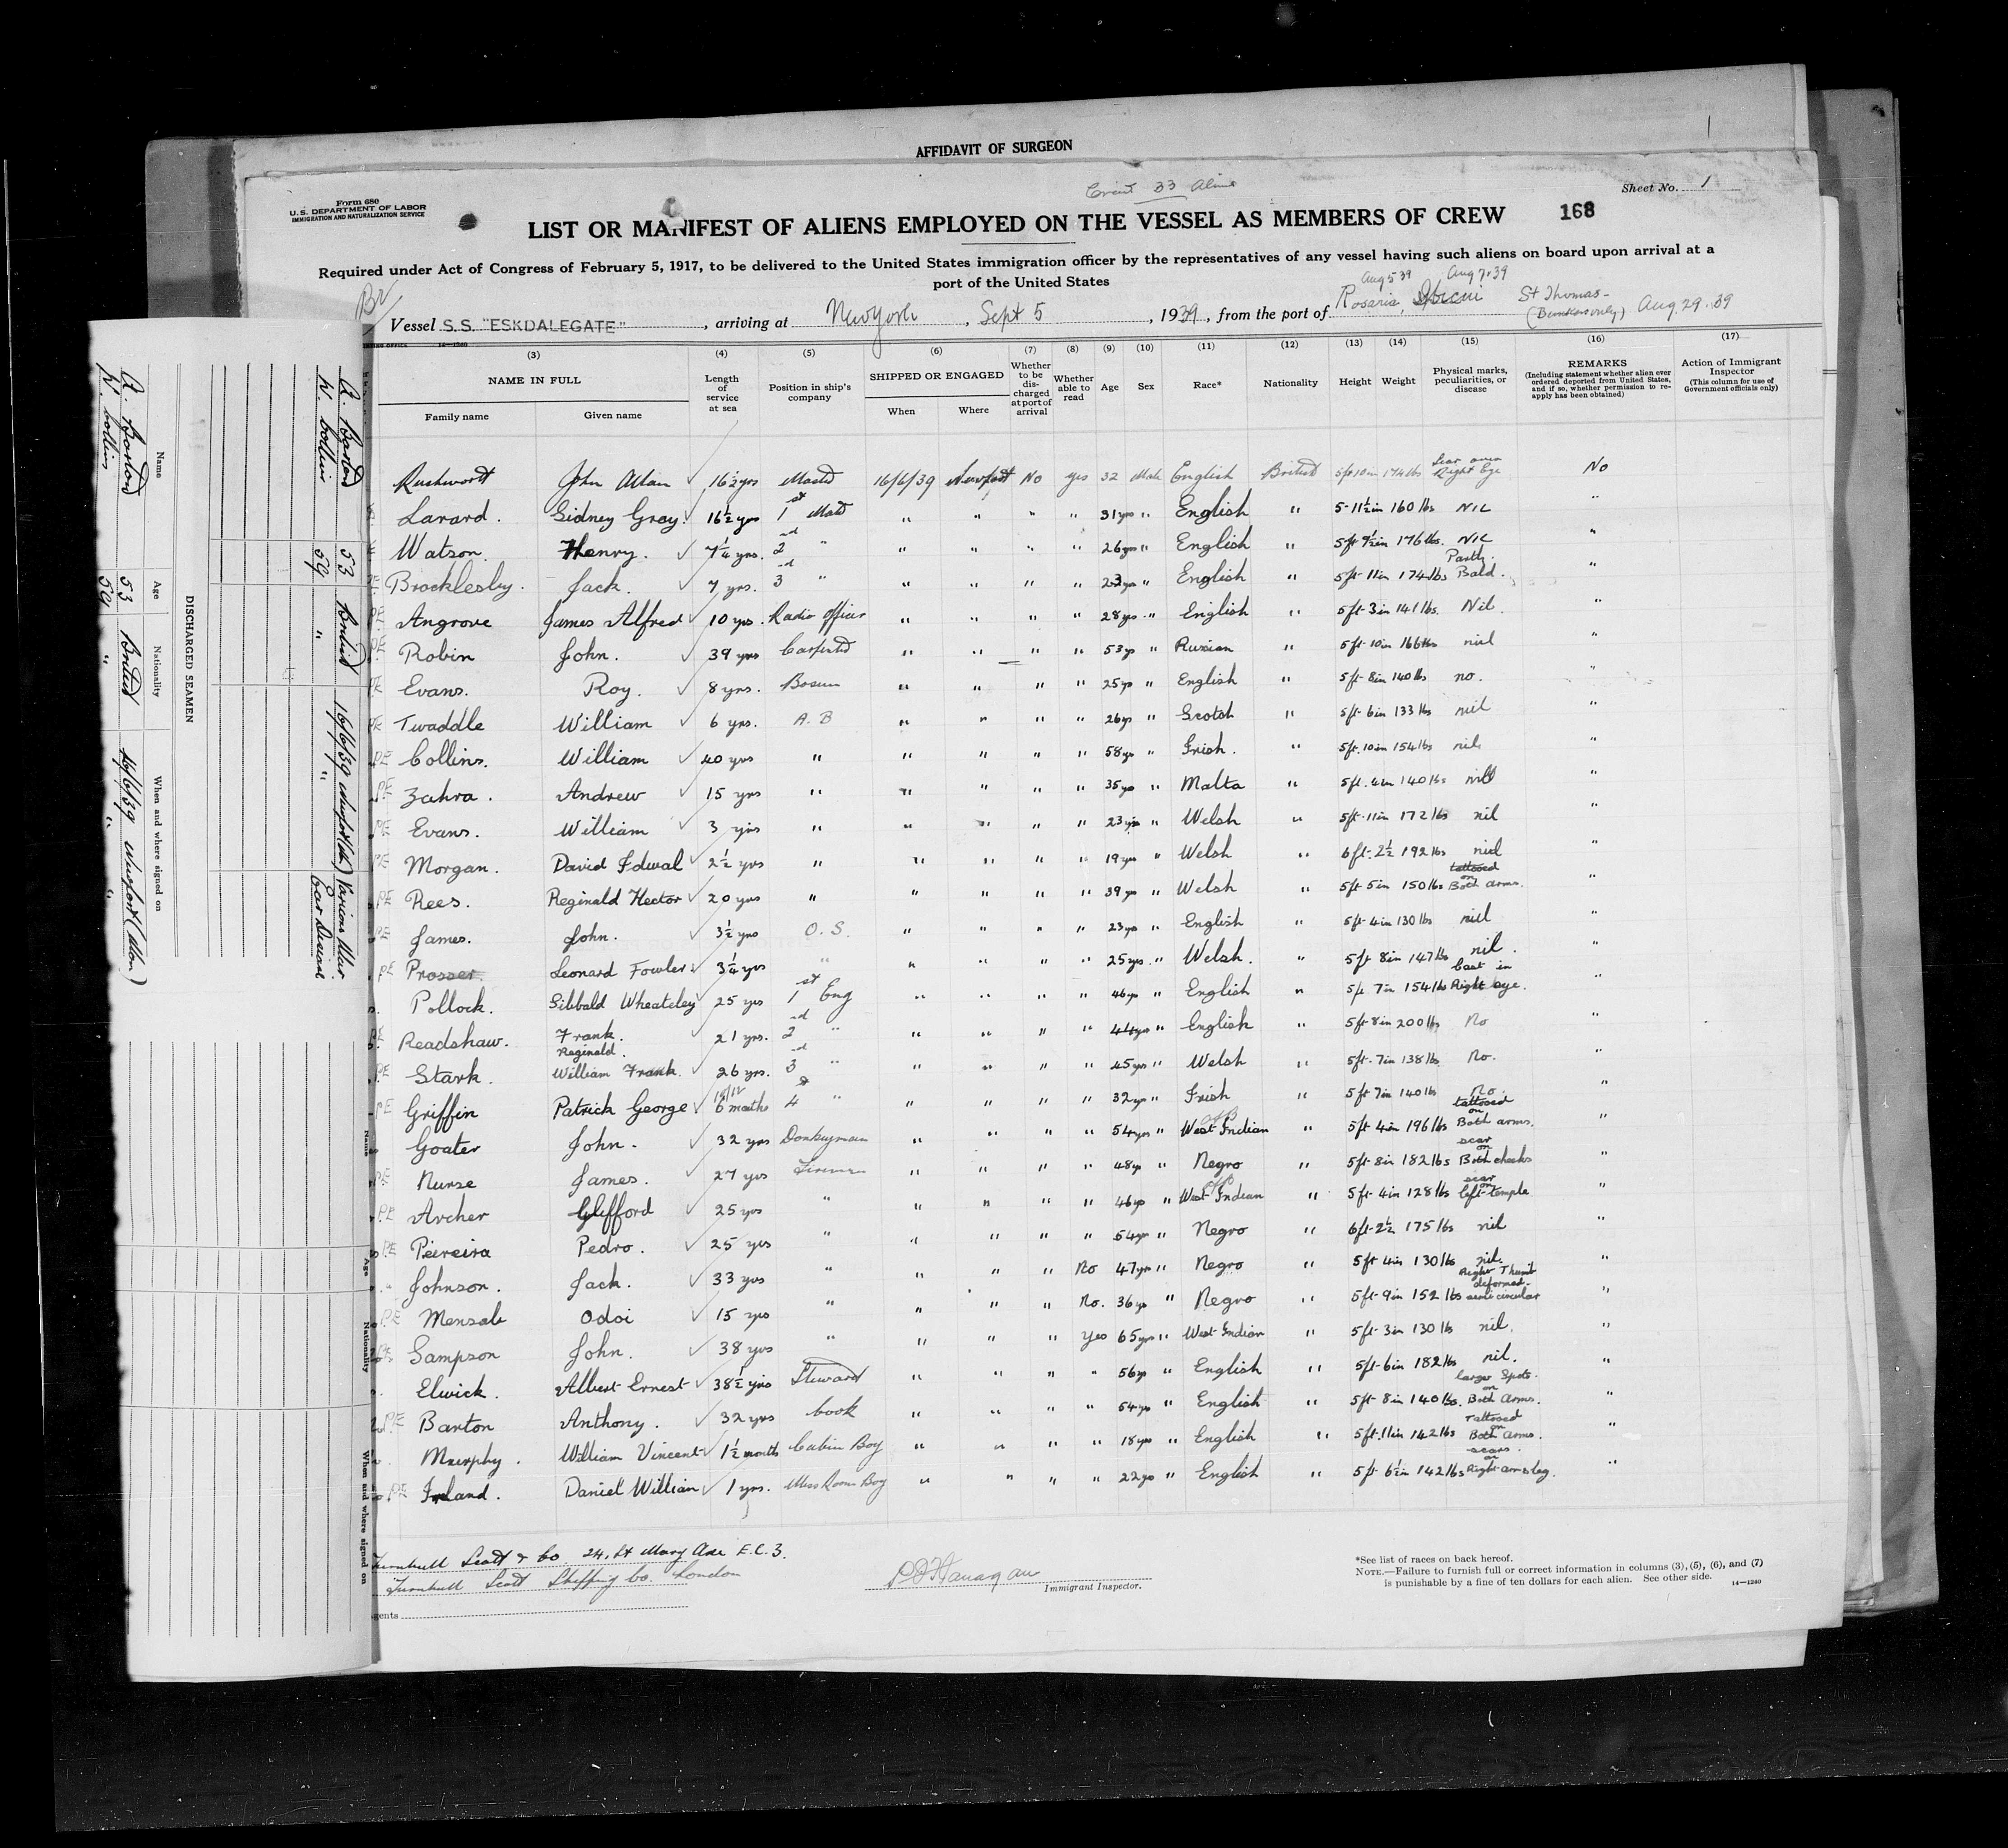 AFFIDAVIT OF SURGEON
1
Form 680
U.S. DEPARTMENT OF LABOR
IMMIGRATION AND NATURALIZATION SERVICE
33 Aliens
Sheet No. 1
LIST OR MANIFEST OF ALIENS EMPLOYED ON THE VESSEL AS MEMBERS OF CREW 168
Required under Act of Congress of February 5, 1917, to be delivered to the United States immigration officer by the representatives of any vessel having such aliens on board upon arrival at a
port of the United States
Br
Aug 5 39 Aug 7.39
Vessel S.S. "ESKDALEGATE", arriving at New York, Sept 5, 1939, from the port of Rosario, St Thomas- (Bunkers only) Aug. 29. 39
14—1240
(3) (4) (5) (6) (7) (8) (9) (10) (11) (12) (13) (14) (15) (16) (17)
NAME IN FULL Family name Given name Length of service at sea Position in ship's company SHIPPED OR ENGAGED When Where Whether to be discharged at port of arrival Whether able to read Age Sex Race* Nationality Height Weight Physical marks, peculiarities, or disease REMARKS (Including statement whether alien ever ordered deported from United States, and if so, whether permission to reapply has been obtained) Action of Immigrant Inspector (This column for use of Government officials only)
Rushworth John Allan 16½ yrs Master 16/6/39 Newport No yes 32 Male English British 5ft 10in 174 lbs Scar over Right Eye No
Lavard. Sidney Gray. 16½ yrs 1st Mate " " " " 31 yrs " English " 5-11½in 160 lbs NIL "
Watson. Henry. 7¼ yrs. 2nd " " " " " 26 yrs " English " 5ft 9½in 176 lbs. NIL "
Brocklesby. Jack. 7 yrs. 3rd " " " " " 23 yrs " English " 5ft-11in 174 lbs Partly Bald. "
Angrove James Alfred 10 yrs. Radio Officer " " " " 28 yrs. " English " 5ft-3in 141 lbs. Nil. "
Robin John. 39 yrs Carpenter " " " " 53 yrs " Russian " 5ft-10in 166 lbs nil "
Evans. Roy. 8 yrs. Bosun " " " " 25 yrs " English " 5ft-8in 140 lbs no. "
Twaddle William 6 yrs. A.B " " " " 26 yrs " Scotch " 5ft-6in 133 lbs nil "
Collins. William 40 yrs " " " " " 58 yrs " Irish. " 5ft.10in 154 lbs nil "
Zahra. Andrew 15 yrs " " " " " 35 yrs " Malta " 5ft.4in 140 lbs nill "
Evans. William 3 yrs " " " " " 23 yrs " Welsh " 5ft-11in 172 lbs nil "
Morgan. David Idwal 2½ yrs " " " " " 19 yrs " Welsh " 6ft.2½ 192 lbs nil "
Rees. Reginald Hector 20 yrs " " " " " 39 yrs " Welsh " 5ft 5in 150 lbs tattooed on Both arms. "
James. John. 3½ yrs O.S. " " " " 23 yrs " English " 5ft-4in 130 lbs nil "
Prosser. Leonard Fowler 3¼ yrs " " " " " 25 yrs. " Welsh. " 5ft 8in 147 lbs nil. "
Pollock. Sibbald Wheateley 25 yrs 1st Eng " " " " 46 yrs " English " 5ft 7in 154 lbs Cast in Right eye. "
Readshaw. Frank. 21 yrs. 2nd " " " " " 44 yrs " English " 5ft 8in 200 lbs No "
Stark. Reginald. William Frank. 26 yrs. 3rd " " " " " 45 yrs " Welsh " 5ft-7in 138 lbs No. "
Griffin Patrick George 6 months 4 " " " " " 32 yrs " Irish " 5ft 7in 140 lbs No. "
Goater John. 32 yrs Donkeyman " " " " 54 yrs " West Indian " 5ft 4in 196 lbs tattooed on Both arms. "
Nurse James. 27 yrs Fireman " " " " 48 yrs " Negro " 5ft-8in 182 lbs scar on Both cheeks "
Archer Glifford 25 yrs " " " " " 46 yrs " West Indian " 5ft 4in 128 lbs scar on left-temple "
Peireira Pedro. 25 yrs " " " " " 54 yrs " Negro " 6ft-2½ 175 lbs nil "
Johnson. Jack. 33 yrs " " " " No 47 yrs " Negro " 5ft 4in 130 lbs nil. "
Mensah Odoi 15 yrs " " " " No. 36 yrs " Negro " 5ft-9in 152 lbs Right Thumb deformed- semi circular "
Sampson John. 38 yrs " " " " Yes 65 yrs " West Indian " 5ft-3in 130 lbs nil. "
Elwick. Albert Ernest 38½ yrs Steward " " " " 56 yrs " English " 5ft-6in 182 lbs nil. "
Barton Anthony. 32 yrs Cook " " " " 54 yrs " English " 5ft-8in 140 lbs. large Spots on Both Arms. "
Murphy. William Vincent 1½ months Cabin Boy " " " " 18 yrs " English " 5ft.11in 142 lbs Tattooed on Both Arms. "
Ireland. Daniel William 1 yrs. Mess Room Boy " " " " 22 yrs " English " 5ft 6½in 142 lbs scars on Right arm & leg. "
Turnbull Scott & Co. 24, St Mary Axe E.C.3.
Turnbull Scott Shipping Co. London
Immigrant Inspector.
*See list of races on back hereof.
NOTE.—Failure to furnish full or correct information in columns (3), (5), (6), and (7)
is punishable by a fine of ten dollars for each alien. See other side. 14—1240
DISCHARGED SEAMEN
Name Age Nationality When and where signed on
A. Barton 53 British 16/6/39 Newport (Mon)
W. Collins 59 " " "
A. Barton 53 British 16/6/39 Newport (Mon)
W. Collins 59 " "
Name Age Nationality When and where signed on